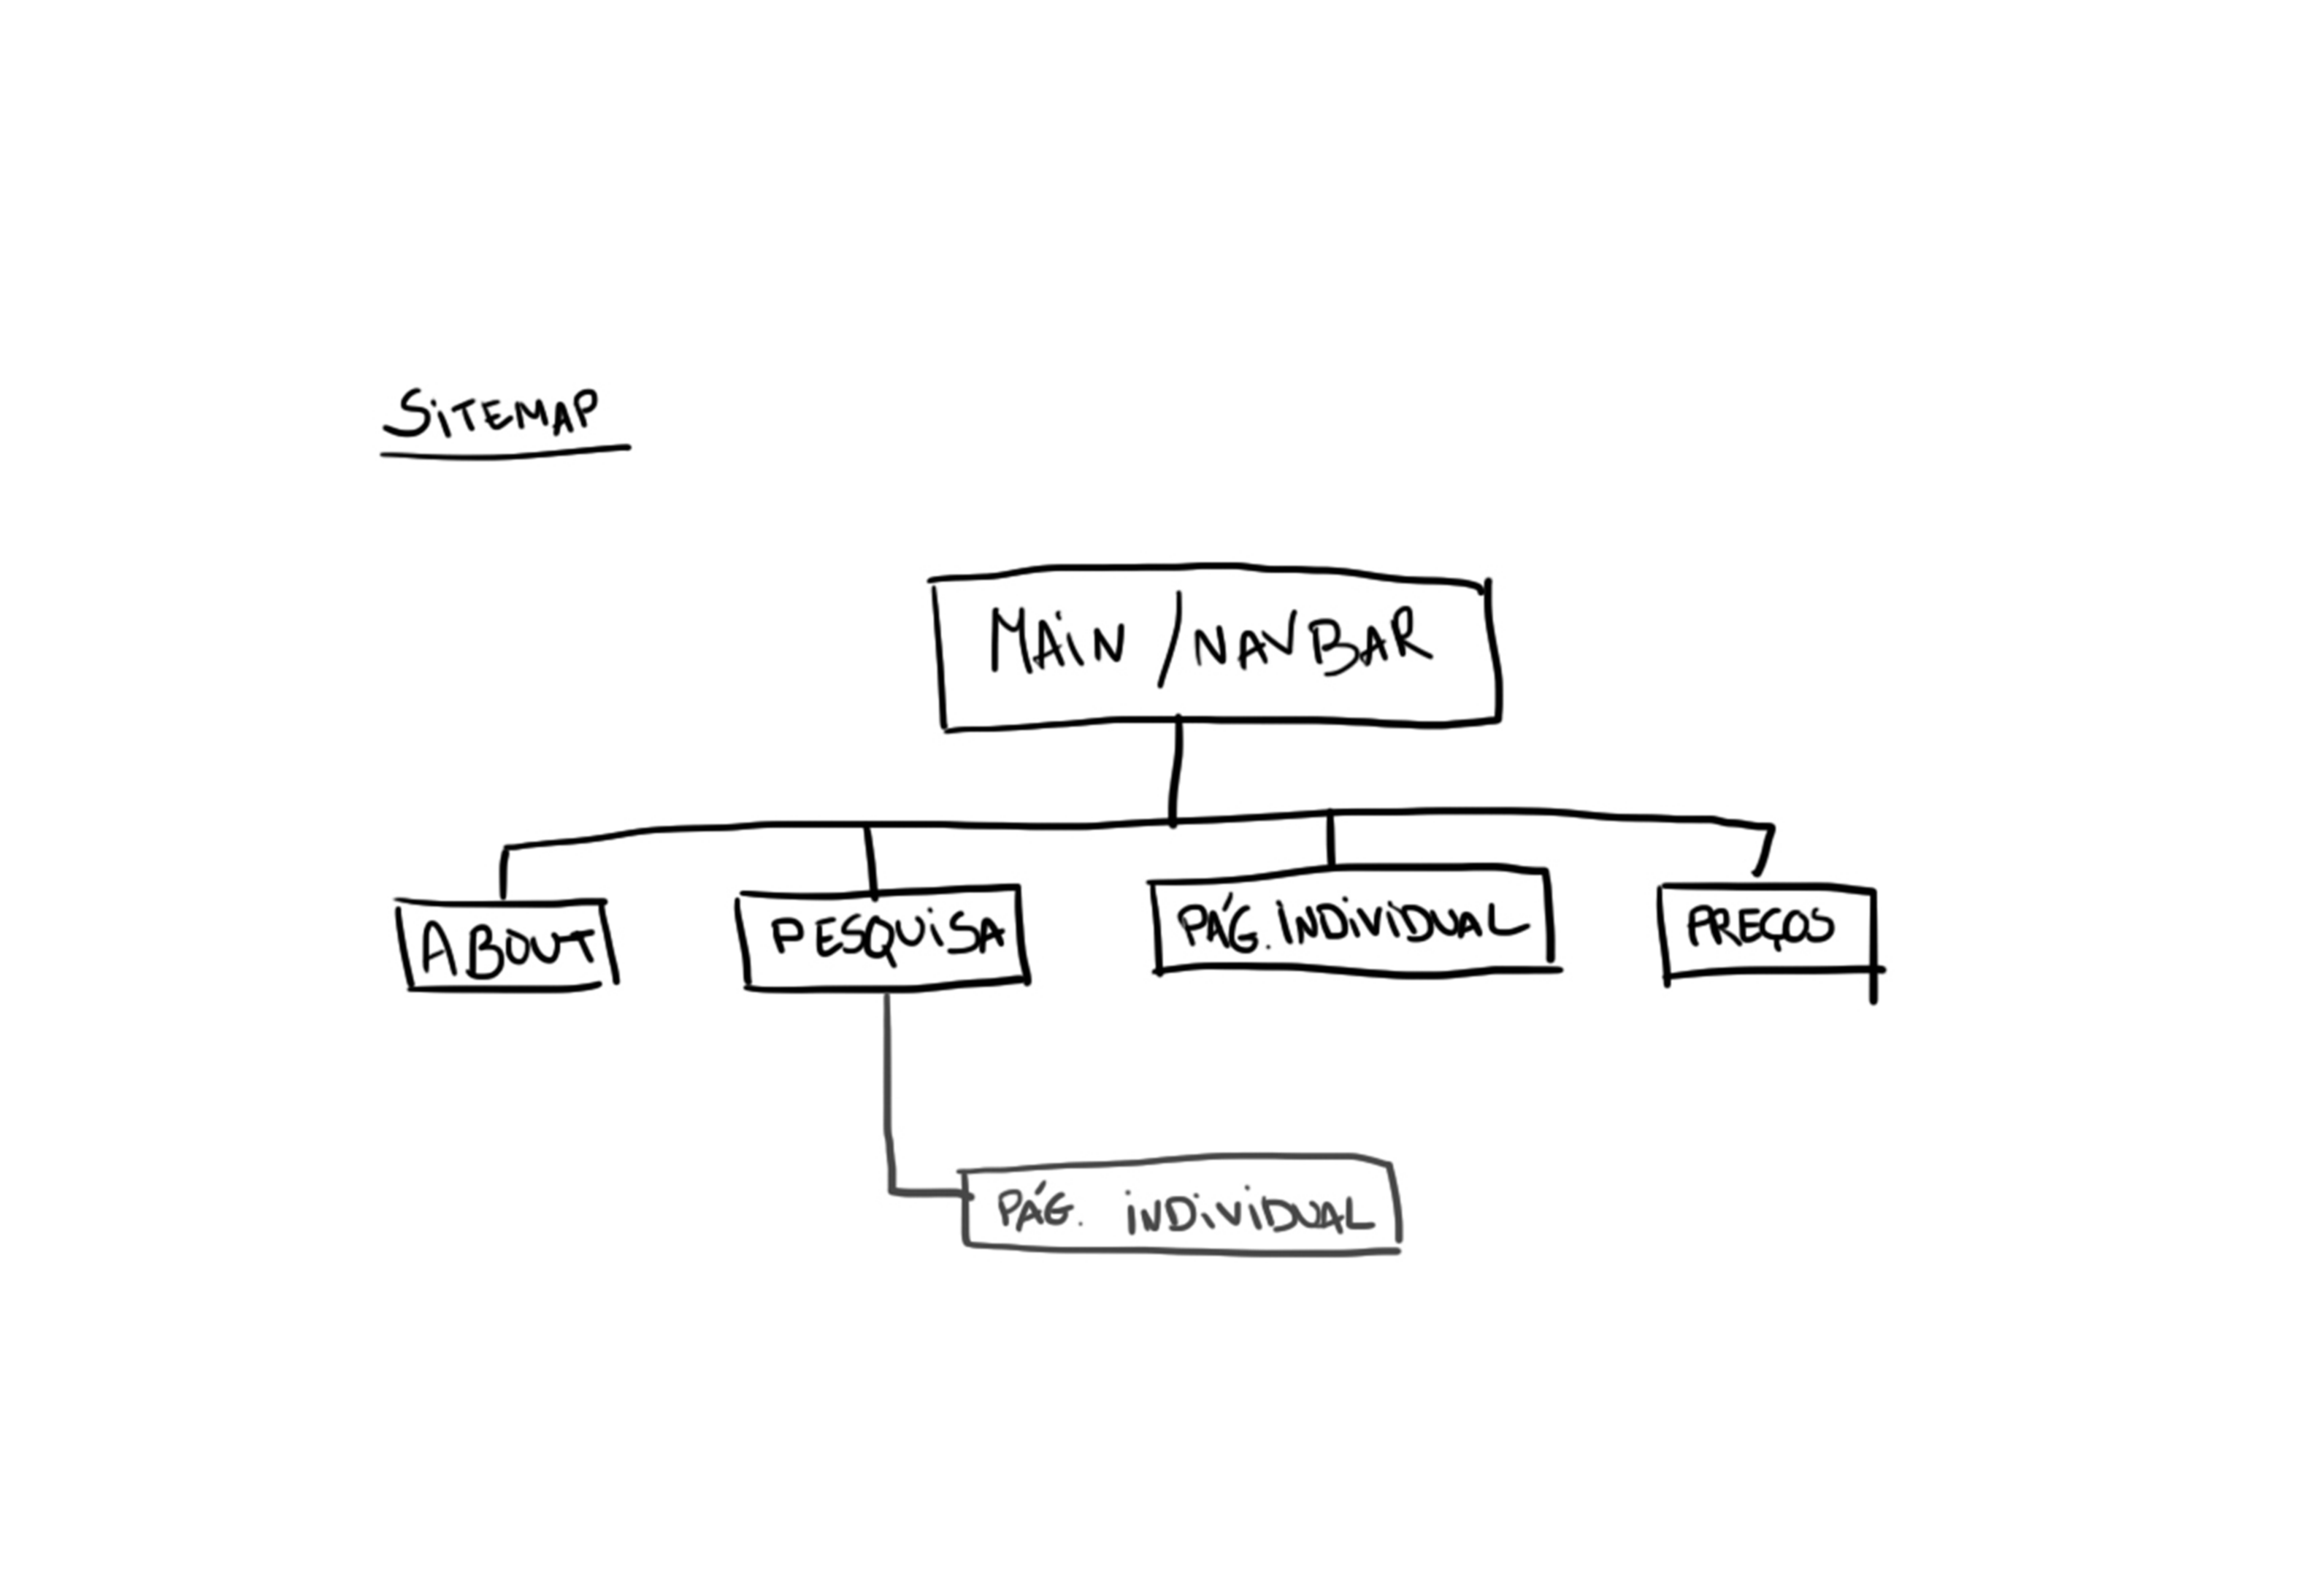 SiTEMAP
MAiN / NAVBAR
ABOUT
PESQUiSA
PÁG. iNDiViDUAL
PREÇOS
PÁG. iNDiViDUAL